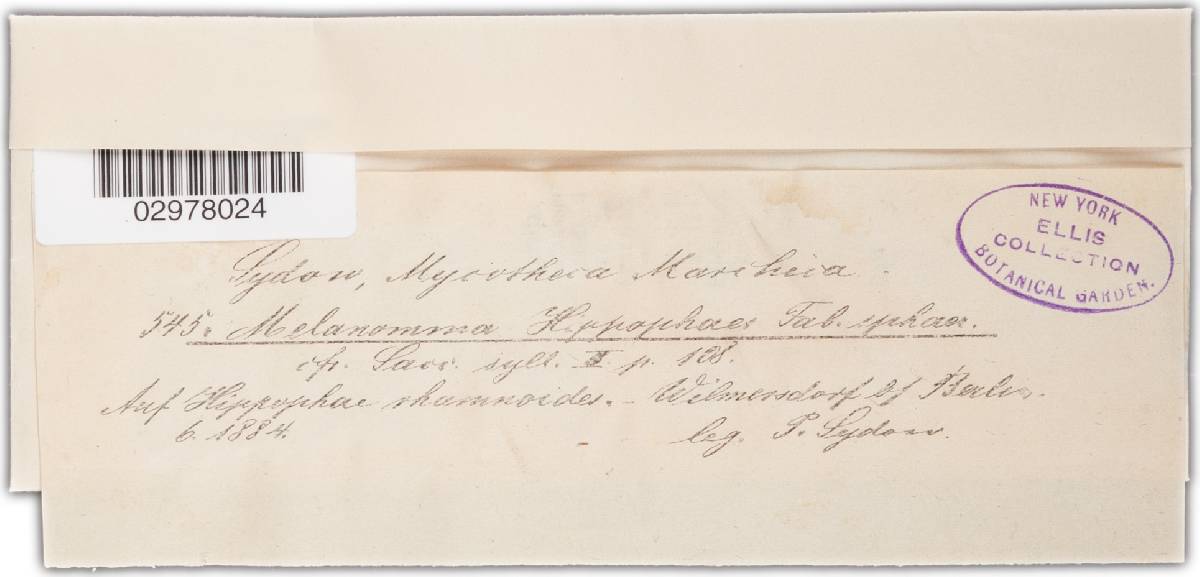 02978024
NEW YORK
ELLIS
COLLECTION
BOTANICAL GARDEN.
Sydow, Mycotheca Marchica.
545. Melanomma Hippophaes Fab. sphaer.
cfr. Sacc. syll. II p. 108.
Auf Hippophae rhamnoides. – Wilmersdorf bf Berlin.
6. 1884. – leg. P. Sydow.